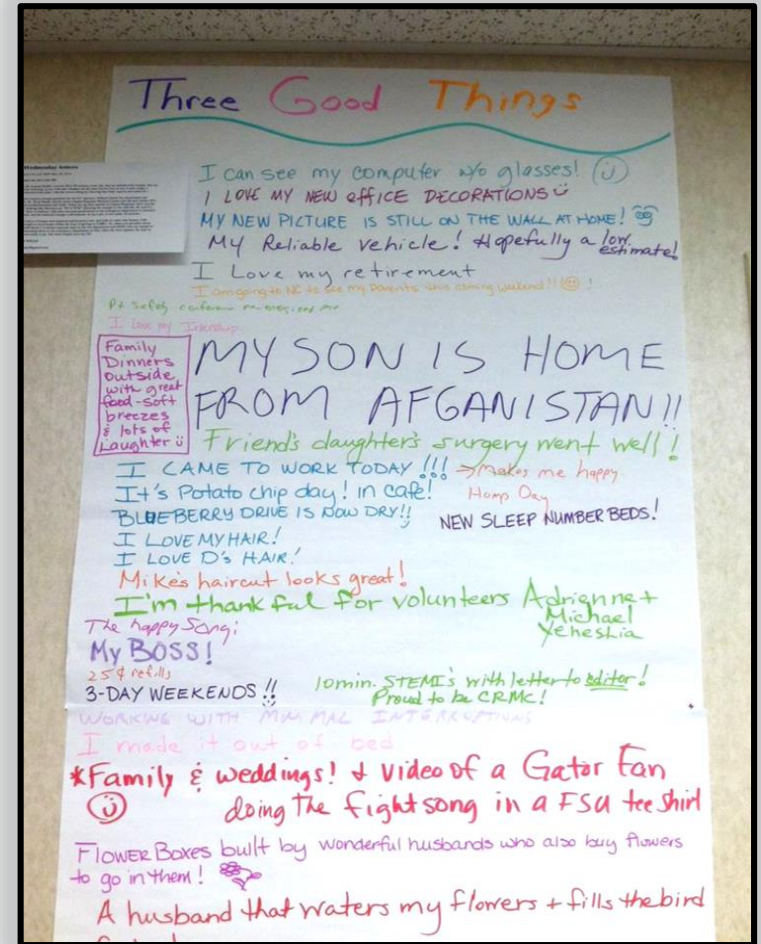 Three Good Things
I can see my computer w/o glasses!
I LOVE MY NEW OFFICE DECORATIONS
MY NEW PICTURE IS STILL ON THE WALL AT HOME!
My Reliable vehicle! Hopefully a low
estimate!
I Love my retirement
I am going to NC to see my parents this coming weekend!! !
Pt Safety conference
I love my
Family
Dinners
outside
with great
food-soft
breezes
& lots of
Laughter
MY SON IS HOME
FROM AFGANISTAN!!
Friend's daughter's surgery went well!
I CAME TO WORK TODAY!!! → Makes me happy
It's Potato chip day! in café!
Hump Day
BLUEBERRY DRIVE IS NOW DRY!!
NEW SLEEP NUMBER BEDS!
I LOVE MY HAIR!
I LOVE D's HAIR!
Mike's haircut looks great!
I'm thankful for volunteers Adrienne +
Michael
Yeheshia
The happy Song!
My BOSS!
25¢ refills
3-DAY WEEKENDS!!
10min. STEMI's with letter to editor!
Proud to be CRMC!
WORKING WITH MINIMAL INTERRUPTIONS
I made it out of bed
*Family & weddings! + video of a Gator Fan
doing the fight song in a FSU tee shirt
FLOWER BOXES built by wonderful husbands who also buy flowers
to go in them!
A husband that waters my flowers + fills the bird